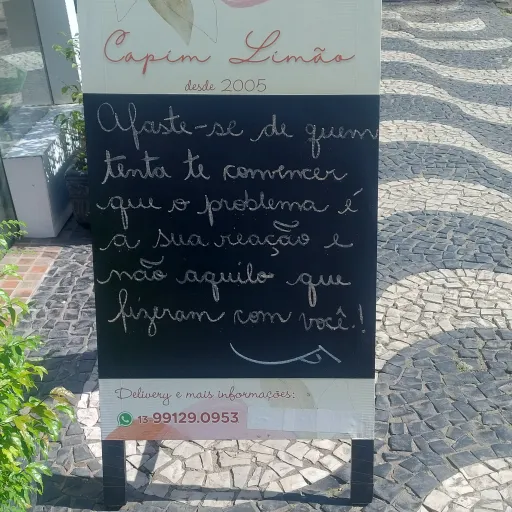 Capim Limão
desde 2005
Afaste-se de quem
tenta te convencer
que o problema é
a sua reação e
não aquilo que
fizeram com você!
Delivery e mais informações:
13 99129.0953